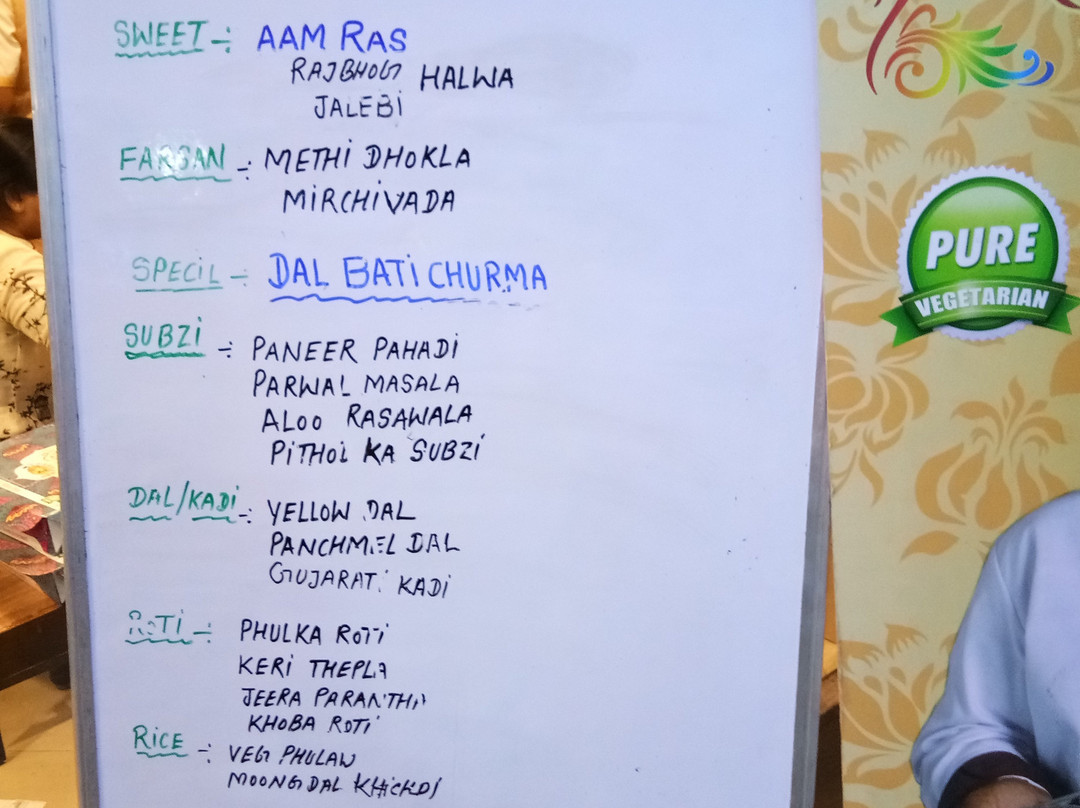 SWEET -: AAM RAS
RAJBHOG HALWA
JALEBI
FARSAN -: METHI DHOKLA
MIRCHIVADA
SPECIL -: DAL BATI CHURMA
SUBZI -: PANEER PAHADI
PARWAL MASALA
ALOO RASAWALA
PITHOL KA SUBZI
DAL/KADI -: YELLOW DAL
PANCHMEL DAL
GUJARATI KADI
ROTI -: PHULKA ROTI
KERI THEPLA
JEERA PARANTHA
KHOBA ROTI
RICE -: VEG PHULAW
MOONG DAL KHICHDI
PURE
VEGETARIAN